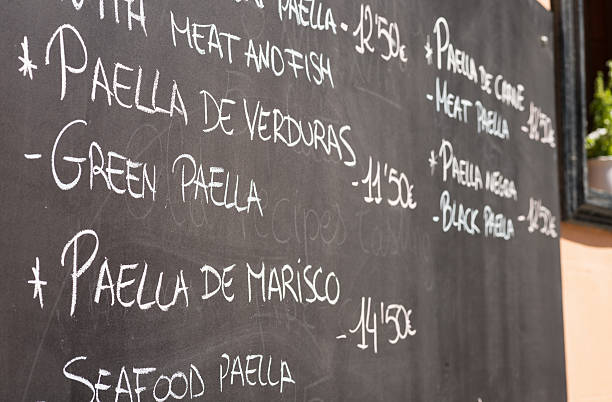 WITH PAELLA -12'50€
MEAT AND FISH
* PAELLA DE VERDURAS
- GREEN PAELLA -11'50€
* PAELLA DE MARISCO
-14'50€
SEAFOOD PAELLA
* PAELLA DE CARNE
- MEAT PAELLA -12'50€
* PAELLA NEGRA
- BLACK PAELLA -12'50€